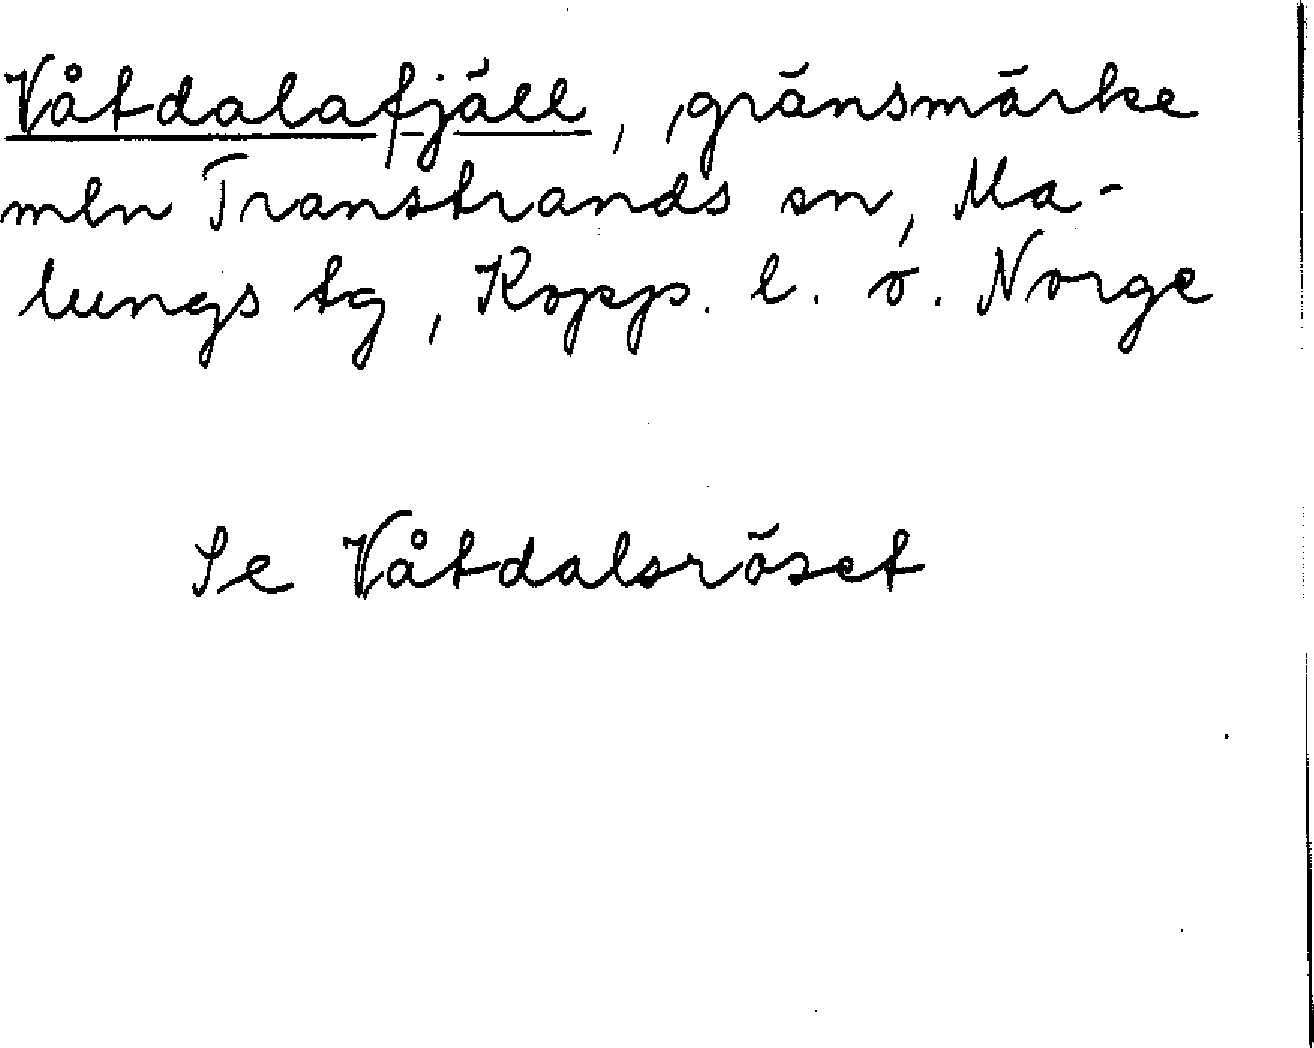 Våtdalafjäll, gränsmärke
mln Transtrands sn, Ma-
lungs tg, Kopp. l. o. Norge
Se Våtdalsröset